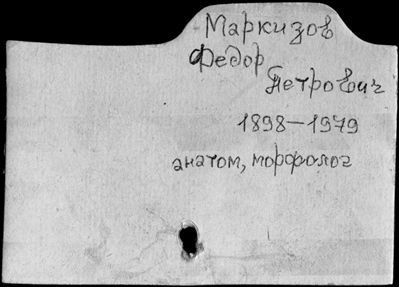 Маркизов
Федор
Петрович
1898-1979
анатом, морфолог